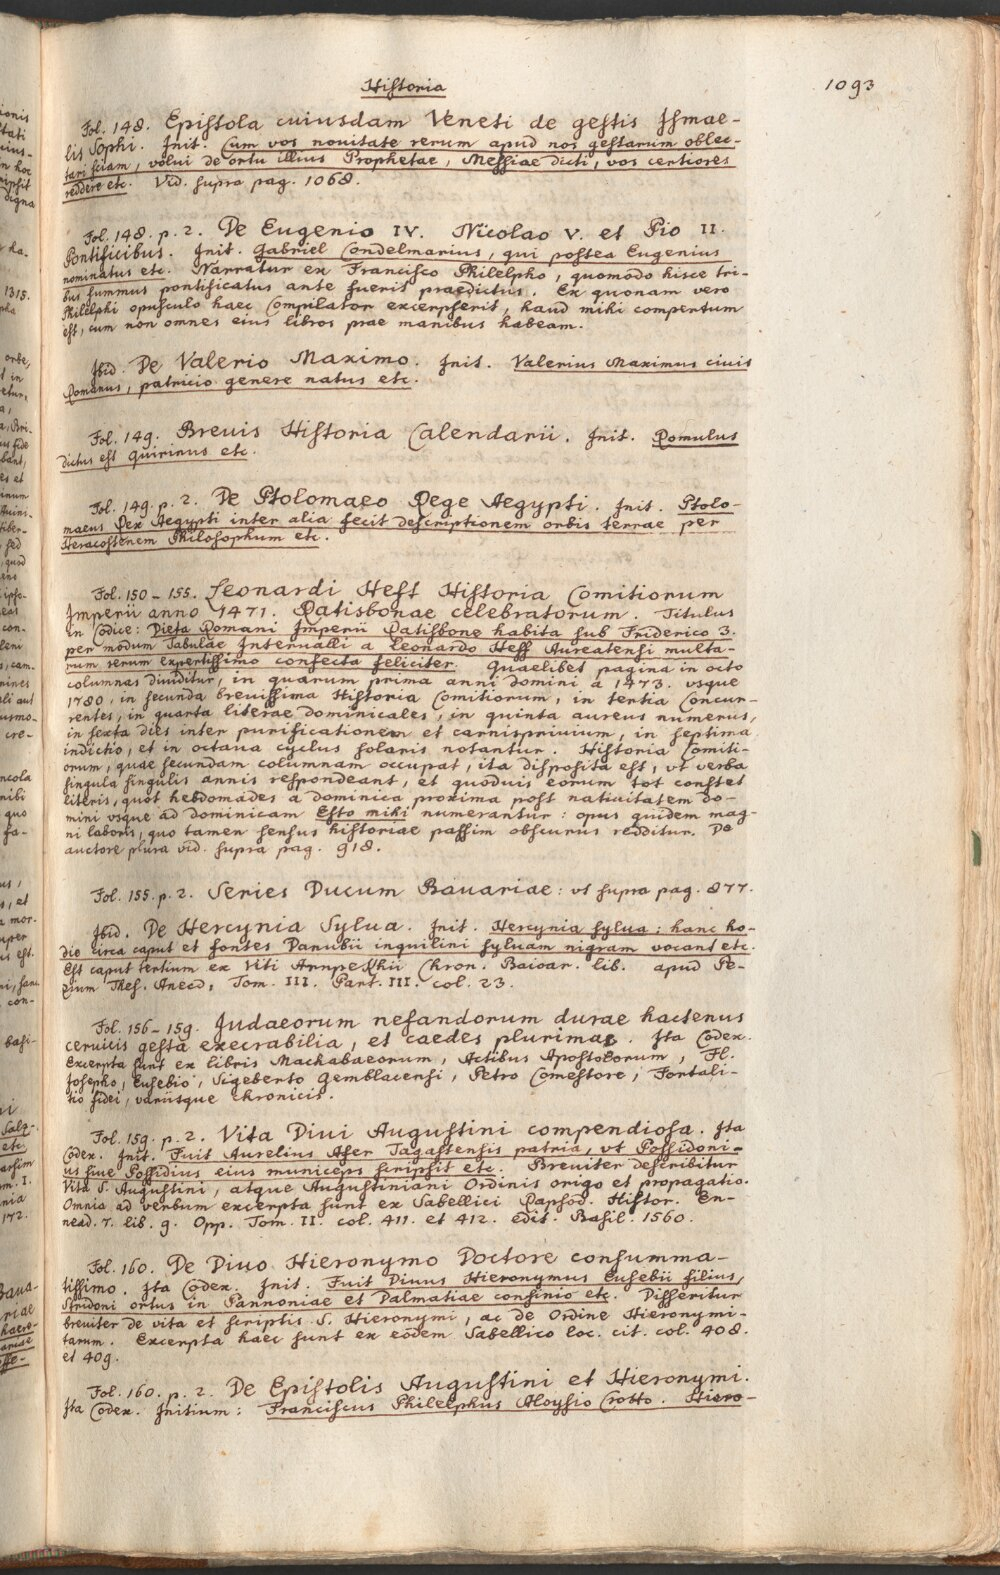 Historia
1093
Fol. 148. Epistola cuiusdam Veneti de gestis Ismae-
lis Sophi. Init. Cum vos nouitate rerum apud nos gestarum oblec-
tari sciam, volui de ortu illius Prophetae, Messiae dicti, vos certiores
reddere etc. Vid. supra pag. 1068.
Fol. 148. p. 2. De Eugenio IV. Nicolao V. et Pio II.
Pontificibus. Init. Gabriel Condelmarius, qui postea Eugenius
nominatus etc. Narratur ex Francisco Philelpho, quomodo hisce tri-
bus summus pontificatus ante fuerit praedictus. Ex quonam vero
Philelphi opusculo haec Compilator excerpserit, haud mihi compertum
est, cum non omnes eius libros prae manibus habeam.
Ibid. De Valerio Maximo. Init. Valerius Maximus ciuis
Romanus, patricio genere natus etc.
Fol. 149. Breuis Historia Calendarii. Init. Romulus
dictus est Quirinus etc.
Fol. 149. p. 2. De Ptolomaeo Rege Aegypti. Init. Ptolo-
maeus Rex Aegypti inter alia fecit descriptionem orbis terrae per
Heracostenem Philosophum etc.
Fol. 150-155. Leonardi Heft Historia Comitiorum
Imperii anno 1471. Ratisbonae celebratorum. Titulus
in Codice: Dieta Romani Imperii Ratisbone habita sub Friderico 3.
per modum Tabulae Interualli a Leonardo Heff Aureatensi multa-
rum rerum expertissimo confecta feliciter. Quaelibet pagina in octo
columnas diuiditur, in quarum prima anni domini a 1473. vsque
1780, in secunda breuissima Historia Comitiorum, in tertia Concur-
rentes, in quarta literae dominicales, in quinta aureus numerus,
in sexta dies inter purificationem et carnispriuium, in septima
indictio, et in octaua cyclus solaris notantur. Historia Comiti-
orum, quae secundam columnam occupat, ita disposita est, vt verba
singula singulis annis respondeant, et quoduis eorum tot constet
literis, quot hebdomades a dominica proxima post natiuitatem do-
mini vsque ad dominicam Esto mihi numerantur: opus quidem mag-
ni laboris, quo tamen sensus historiae passim obscurus redditur. De
auctore plura vid. supra pag. 918.
Fol. 155. p. 2. Series Ducum Bauariae: vt supra pag. 877.
Ibid. De Hercynia Sylua. Init. Hercynia sylua: hanc ho-
die circa caput et fontes Danubii inquilini syluam nigram vocant etc.
Est caput tertium ex Viti Arnpekhii Chron. Baioar. lib. apud Pe-
zium Thes. Anecd, Tom. III. Part. III. col. 23.
Fol. 156-159. Judaeorum nefandorum durae hactenus
ceruicis gesta execrabilia, et caedes plurimae. Ita Codex.
Excerpta sunt ex libris Machabaeorum, Actibus Apostolorum, Fl.
Josepho, Eusebio, Sigeberto Gemblacensi, Petro Comestore, Fortali-
tio fidei, variisque chronicis.
Fol. 159. p. 2. Vita Diui Augustini compendiosa. Ita
Codex. Init. Fuit Aurelius Afer Tagastensis patria, vt Possidoni-
us siue Possidius eius municeps scripsit etc. Breuiter describitur
Vita S. Augustini, atque Augustiniani Ordinis origo et propagatio.
Omnia ad verbum excerpta sunt ex Sabellici Rapsod. Histor. En-
nead. 7. lib. 9. Opp. Tom. II. col. 411. et 412. edit. Basil. 1560.
Fol. 160. De Diuo Hieronymo Doctore consumma-
tissimo. Ita Codex. Init. Fuit Diuus Hieronymus Eusebii filius,
Stridoni ortus in Pannoniae et Dalmatiae confinio etc. Disseritur
breuiter de vita et scriptis S. Hieronymi, ac de Ordine Hieronymi-
tarum. Excerpta haec sunt ex eodem Sabellico loc. cit. col. 408.
et 409.
Fol. 160. p. 2. De Epistolis Augustini et Hieronymi.
Ita Codex. Initium: Franciscus Philelphus Aloysio Crotto. Hiero-